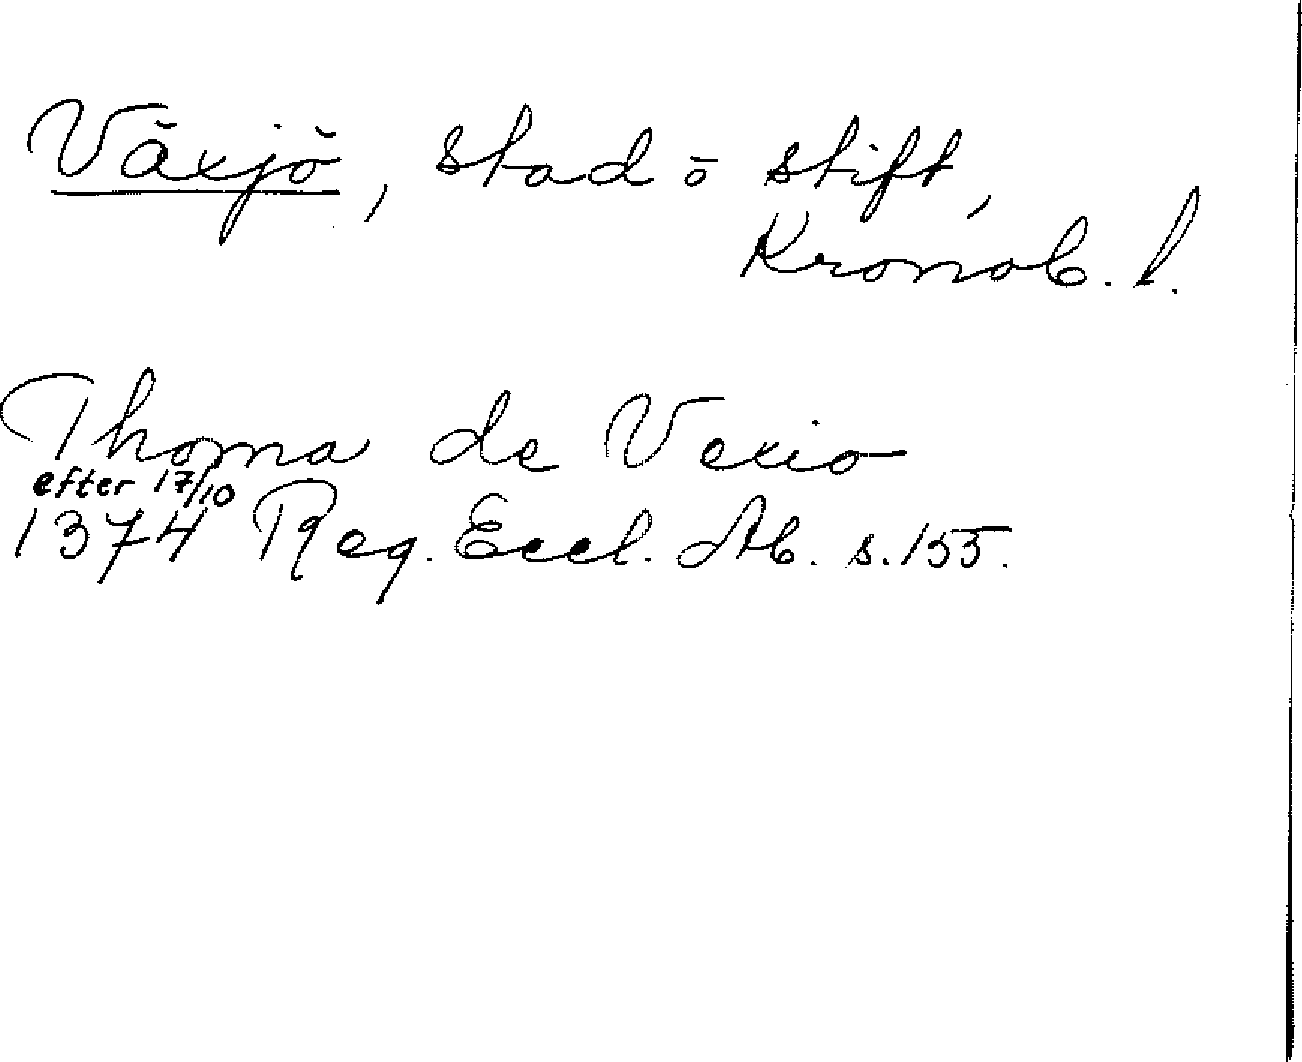 Växjö, stad ō stift,
Kronob. l.
Thoma de Vexio
efter 17/10
1374 Reg. Eccl. Ab. s. 155.